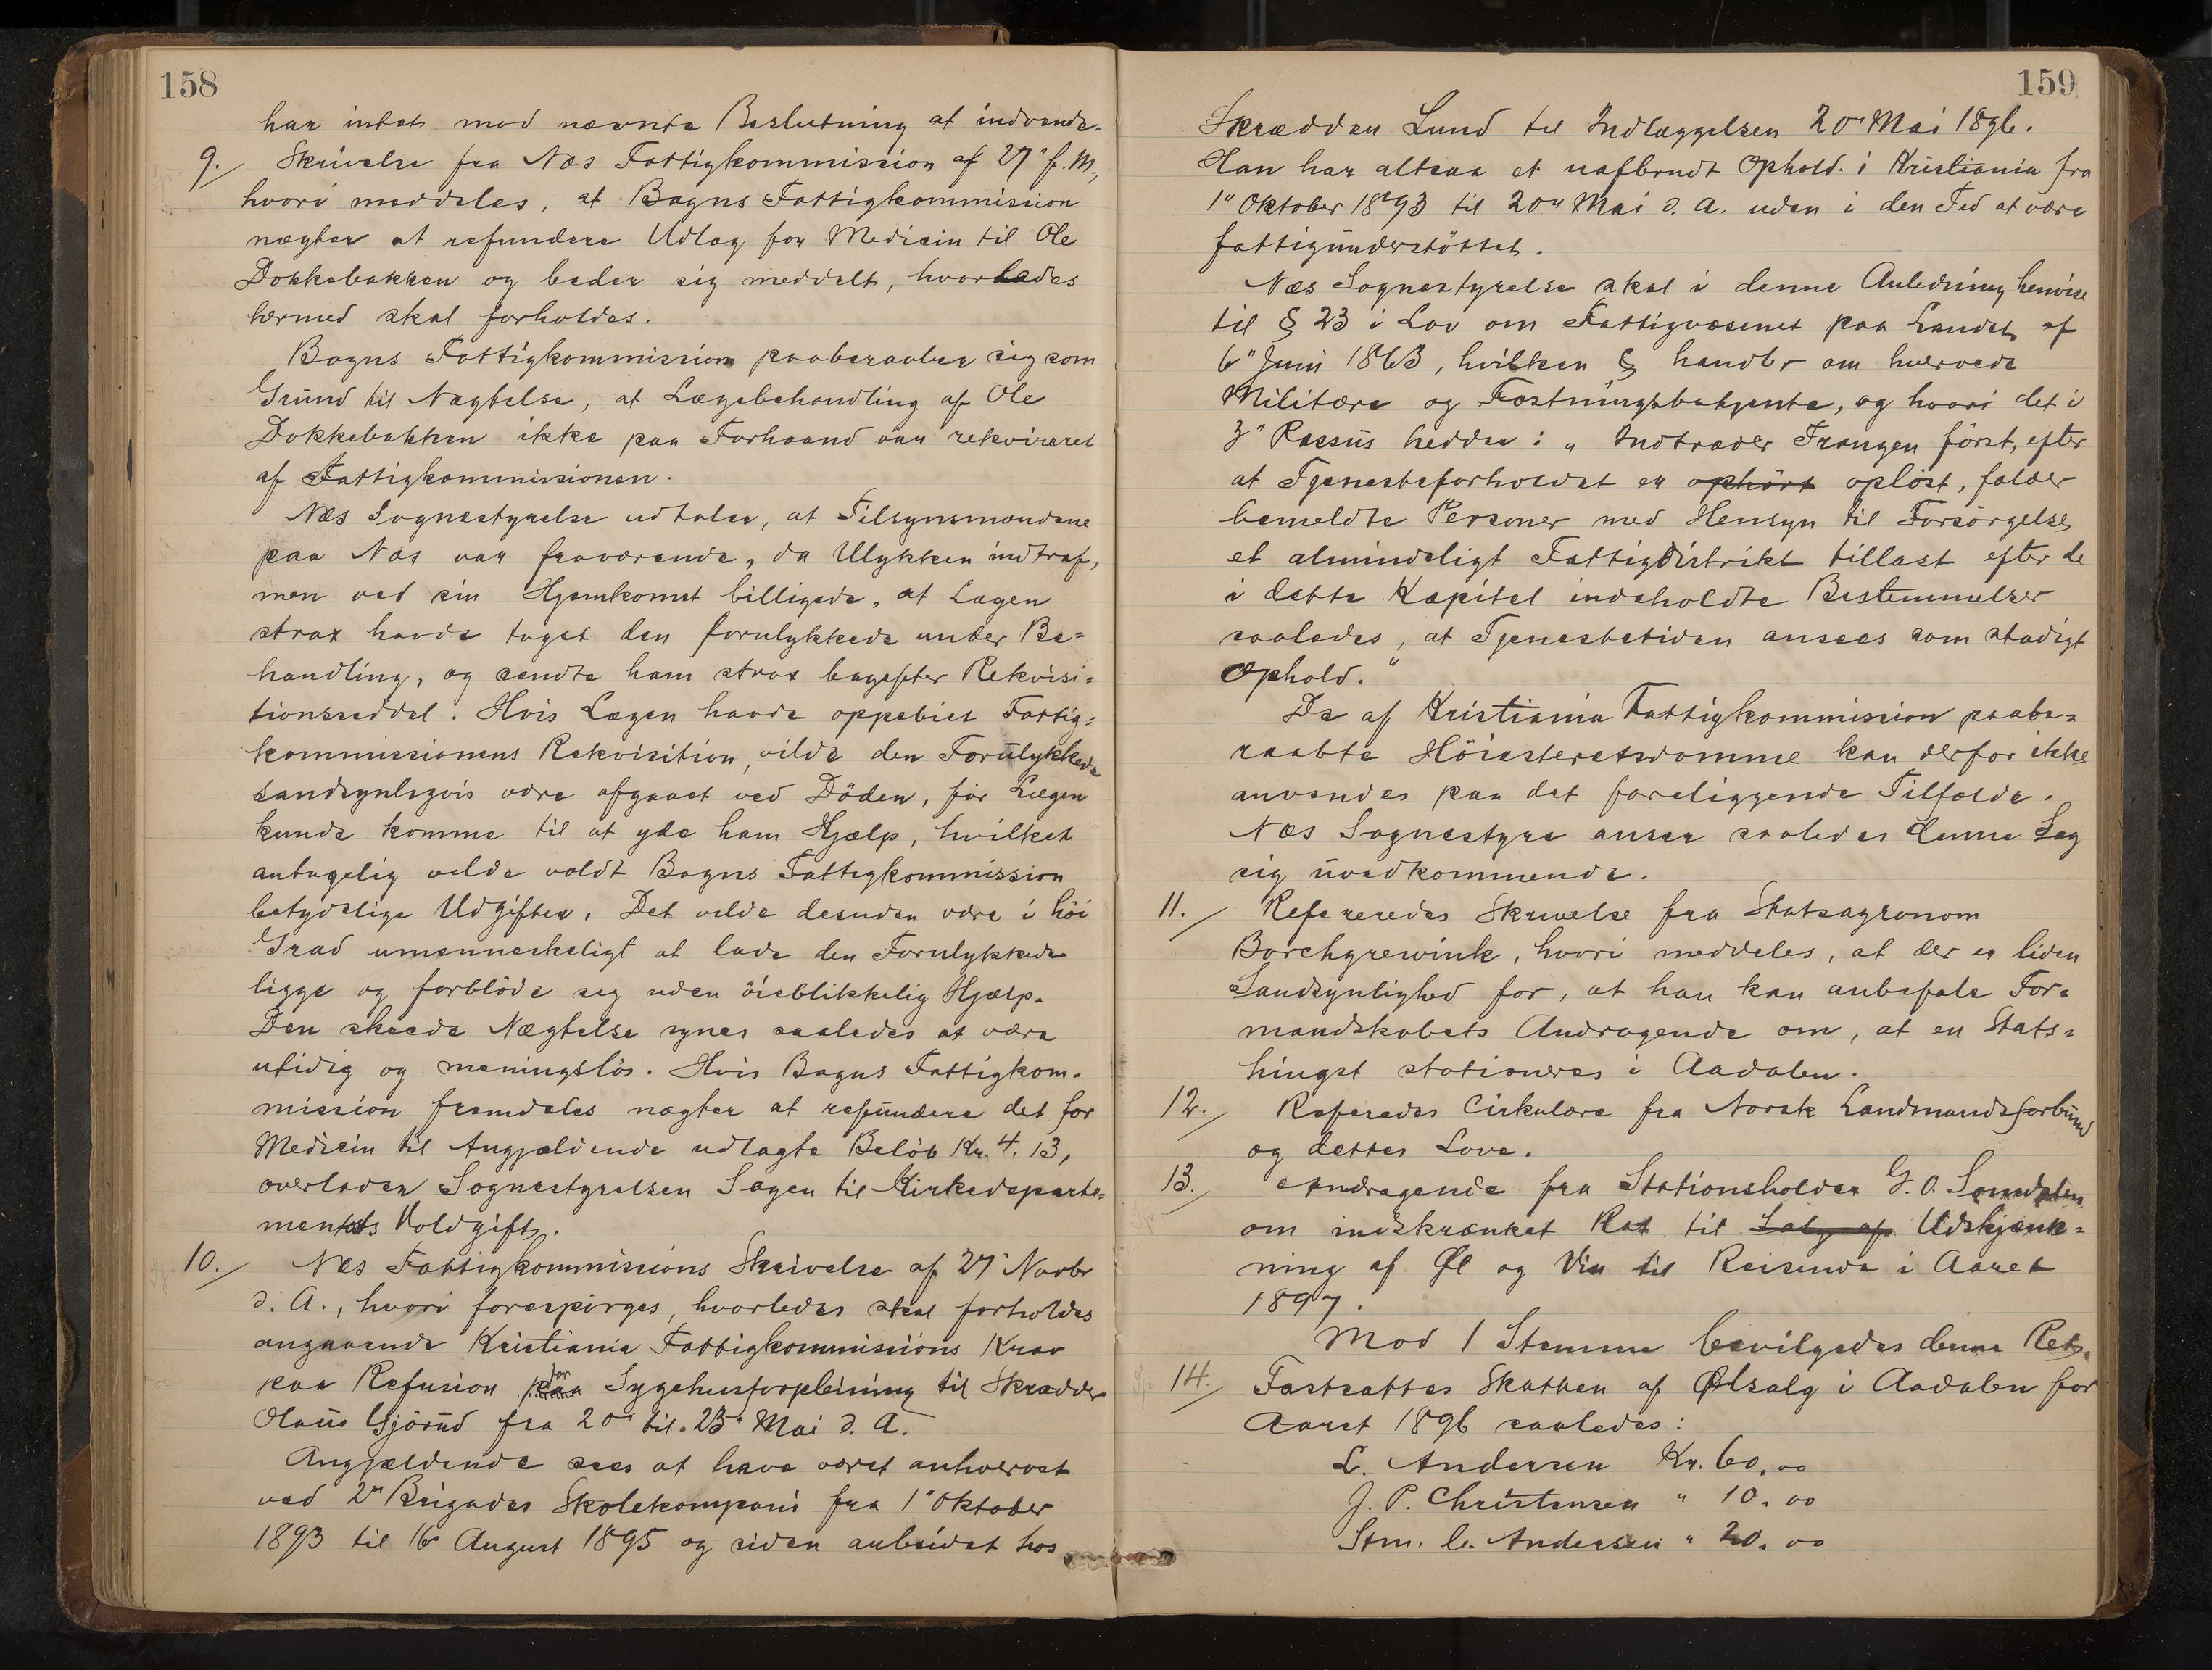 158
har intet mod nævnte Beslutning at indvende.
9./ Skrivelse fra Næs Fattigkommission af 27' f. M.,
hvori meddeles, at Bagns Fattigkommission
nægter at refundere Udlæg for Medicin til Ole
Dokkebakken og beder sig meddelt, hvorledes
hermed skal forholdes.
Bagns Fattigkommission paaberaaber sig som
Grund til Nægtelse, at Lægebehandling af Ole
Dokkebakken ikke paa Forhaand var rekvireret
af Fattigkommissionen.
Næs Sognestyrelse udtaler, at Tilsynsmændene
paa Næs var fraværende, da Ulykken indtraf,
men ved sin Hjemkomst billigede, at Lægen
strax havde taget den forulykkede under Be=
handling, og sendte ham strax bagefter Rekvisi=
tionsseddel. Hvis Lægen havde oppebiet Fattig=
kommissionens Rekvisition, vilde den Forulykkede
sandsynligvis være afgaaet ved Döden, för Lægen
kunde komme til at yde ham Hjælp, hvilket
antagelig vilde voldt Bagns Fattigkommission
betydelige Udgifter. Det vilde desuden være i höi
Grad umenneskeligt at lade den Forulykkede
ligge og forblöde sig uden öieblikkelig Hjælp.
Den skeede Nægtelse synes saaledes at være
utidig og meningslös. Hvis Bagns Fattigkom=
mission fremdeles nægter at refundere det for
Medicin til Angjældende udlagte Belöb Kr. 4.13,
overlader Sognestyrelsen Sagen til Kirkedeparte=
mentets Voldgift.
10./ Næs Fattigkommissions Skrivelse af 27' Novbr
d. A., hvori forespörges, hvorledes skal forholdes
angaaende Kristiania Fattigkommissions Krav
paa Refusion paa for Sygehusforpleining til Skrædder
Olaus Gjörud fra 20de til 23' Mai d. A.
Angjældende sees at have været anhvervet
ved 2n Brigades Skolekompani fra 1' Oktober
1893 til 16 August 1895 og siden arbeidet hos
159
Skrædder Lund til Indlæggelsen 20de Mai 1896.
Han har altsaa et uafbrudt Ophold i Kristiania fra
1' Oktober 1893 til 20de Mai d. A. uden i den Tid at være
fattigunderstöttet.
Næs Sognestyrelse skal i denne Anledning henvise
til § 23 i Lov om Fattigvæsenet paa Landet af
6' Juni 1863, hvilken § handler om hvervede
Militære og Fæstningsbetjente, og hvori det i
3' Passus hedder: „Indtræder Trangen först, efter
at Tjenesteforholdet er ophört oplöst, falder
bemeldte Personer med Hensyn til Forsörgelse
et almindeligt Fattigdistrikt tillast efter de
i dette Kapitel indeholdte Bestemmelser
saaledes, at Tjenestetiden ansees som stadigt
Ophold."
De af Kristiania Fattigkommission paabe=
raabte Höiesteretsdomme kan derfor ikke
anvendes paa det foreliggende Tilfælde.
Næs Sognestyre anser saaledes denne Sag
sig uvedkommende.
11./ Refereredes Skrivelse fra Statsagronom
Borchgrewink, hvori meddeles, at der er liden
Sandsynlighed for, at han kan anbefale For=
mandskabets Andragende om, at en Stats=
hingst stationeres i Aadalen.
12./ Referedes Cirkulære fra Norsk Landmandsforbund
og dettes Love.
13./ Andragende fra Stationsholder G. O.
om indskrænket Ret til Salg af Udskjænk=
ning af Øl og Vin til Reisende i Aaret
1897.
Mod 1 Stemme bevilgedes denne Ret.
14./ Fastsattes Skatten af Ølsalg i Aadalen for
Aaret 1896 saaledes:
L. Andersen Kr. 60.00
J. P. Christensen " 10.00
Stm. C. Andersen " 20.00